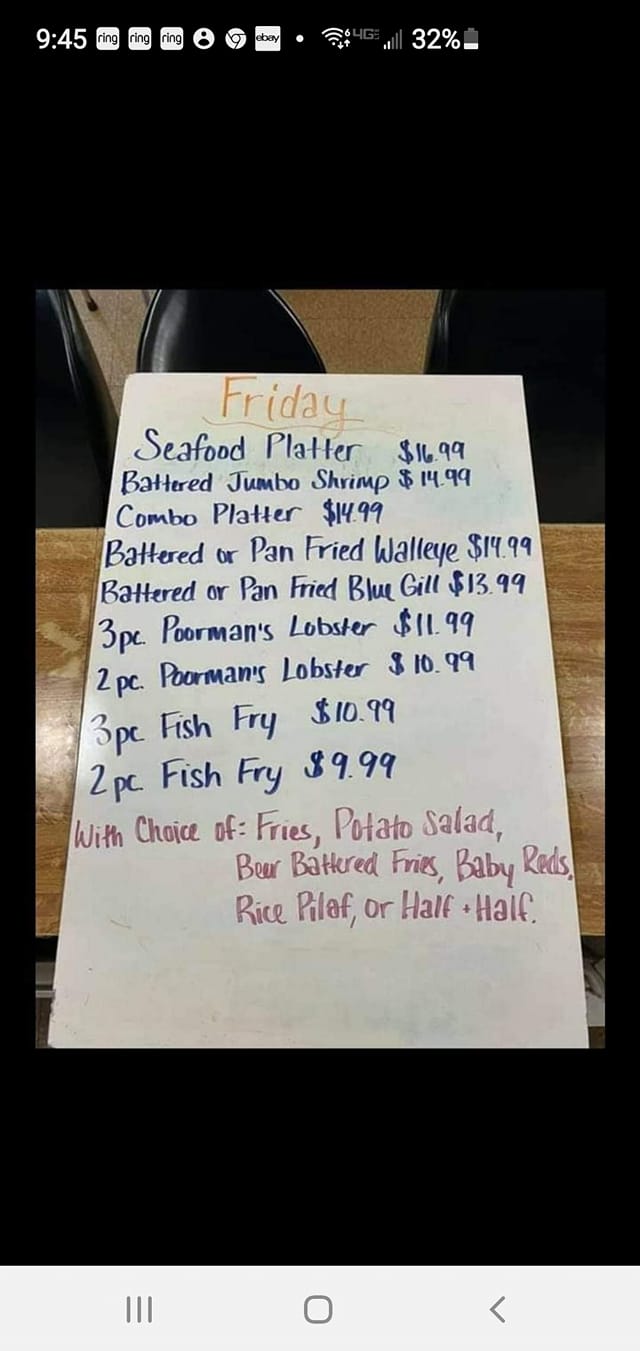 9:45 ring ring ring ebay • 6 4GE 32%
Friday
Seafood Platter $16.99
Battered Jumbo Shrimp $14.99
Combo Platter $14.99
Battered or Pan Fried Walleye $14.99
Battered or Pan Fried Blue Gill $13.99
3pc. Poorman's Lobster $11.99
2 pc. Poorman's Lobster $10.99
3pc Fish Fry $10.99
2pc Fish Fry $9.99
With Choice of: Fries, Potato Salad,
Beer Battered Fries, Baby Reds,
Rice Pilaf, or Half + Half.